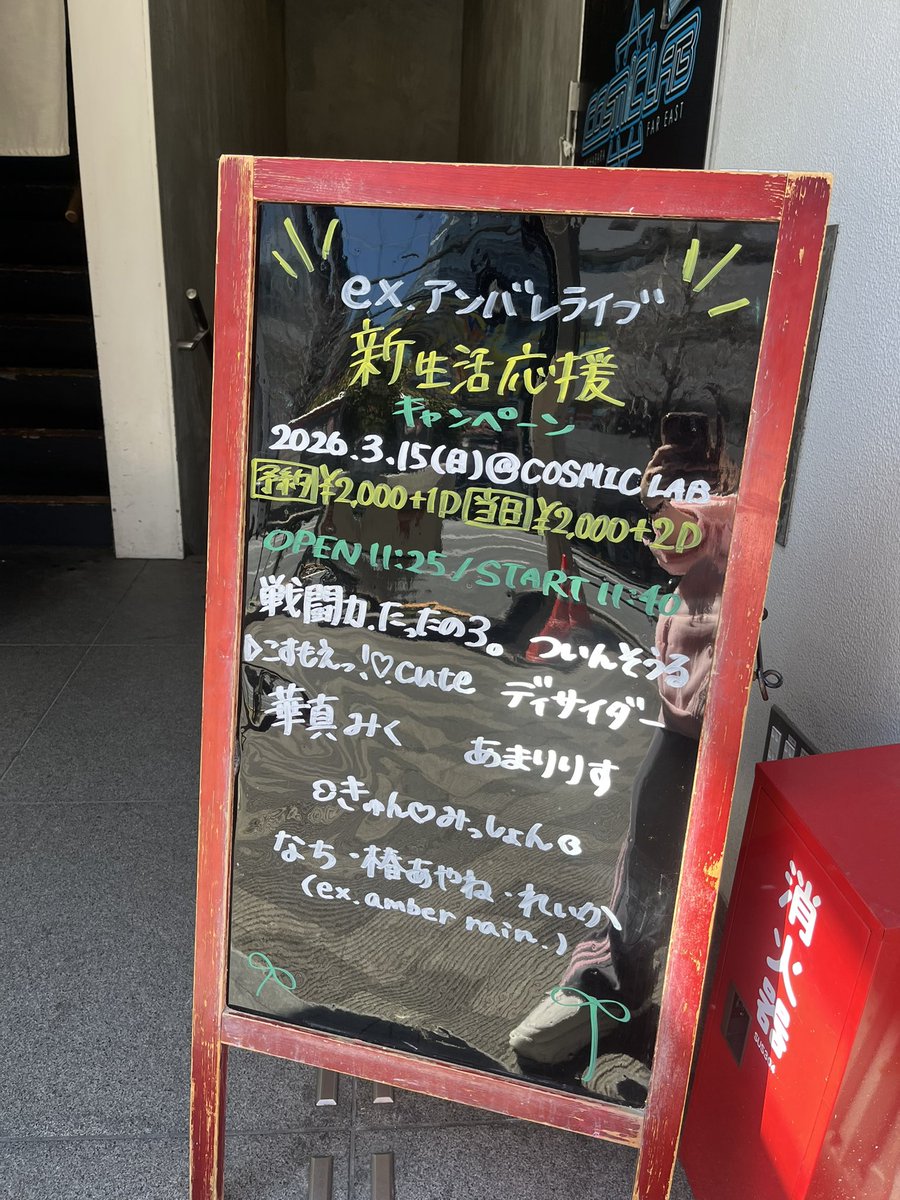 COSMICLAB
FAR EAST
ex.アンバレライブ
新生活応援
キャンペーン
2026.3.15(日)@COSMIC LAB
予約¥2,000+1D 当日¥2,000+2D
OPEN 11:25/START 11:40
戦闘力、たったの3。 ついんそうる
▷こすもえっ!♡cute ディサイダー
華真みく あまりりす
きゅん♡みっしょん
なち・椿あやね・れいか
(ex.amber rain.)
消火器
SUS304